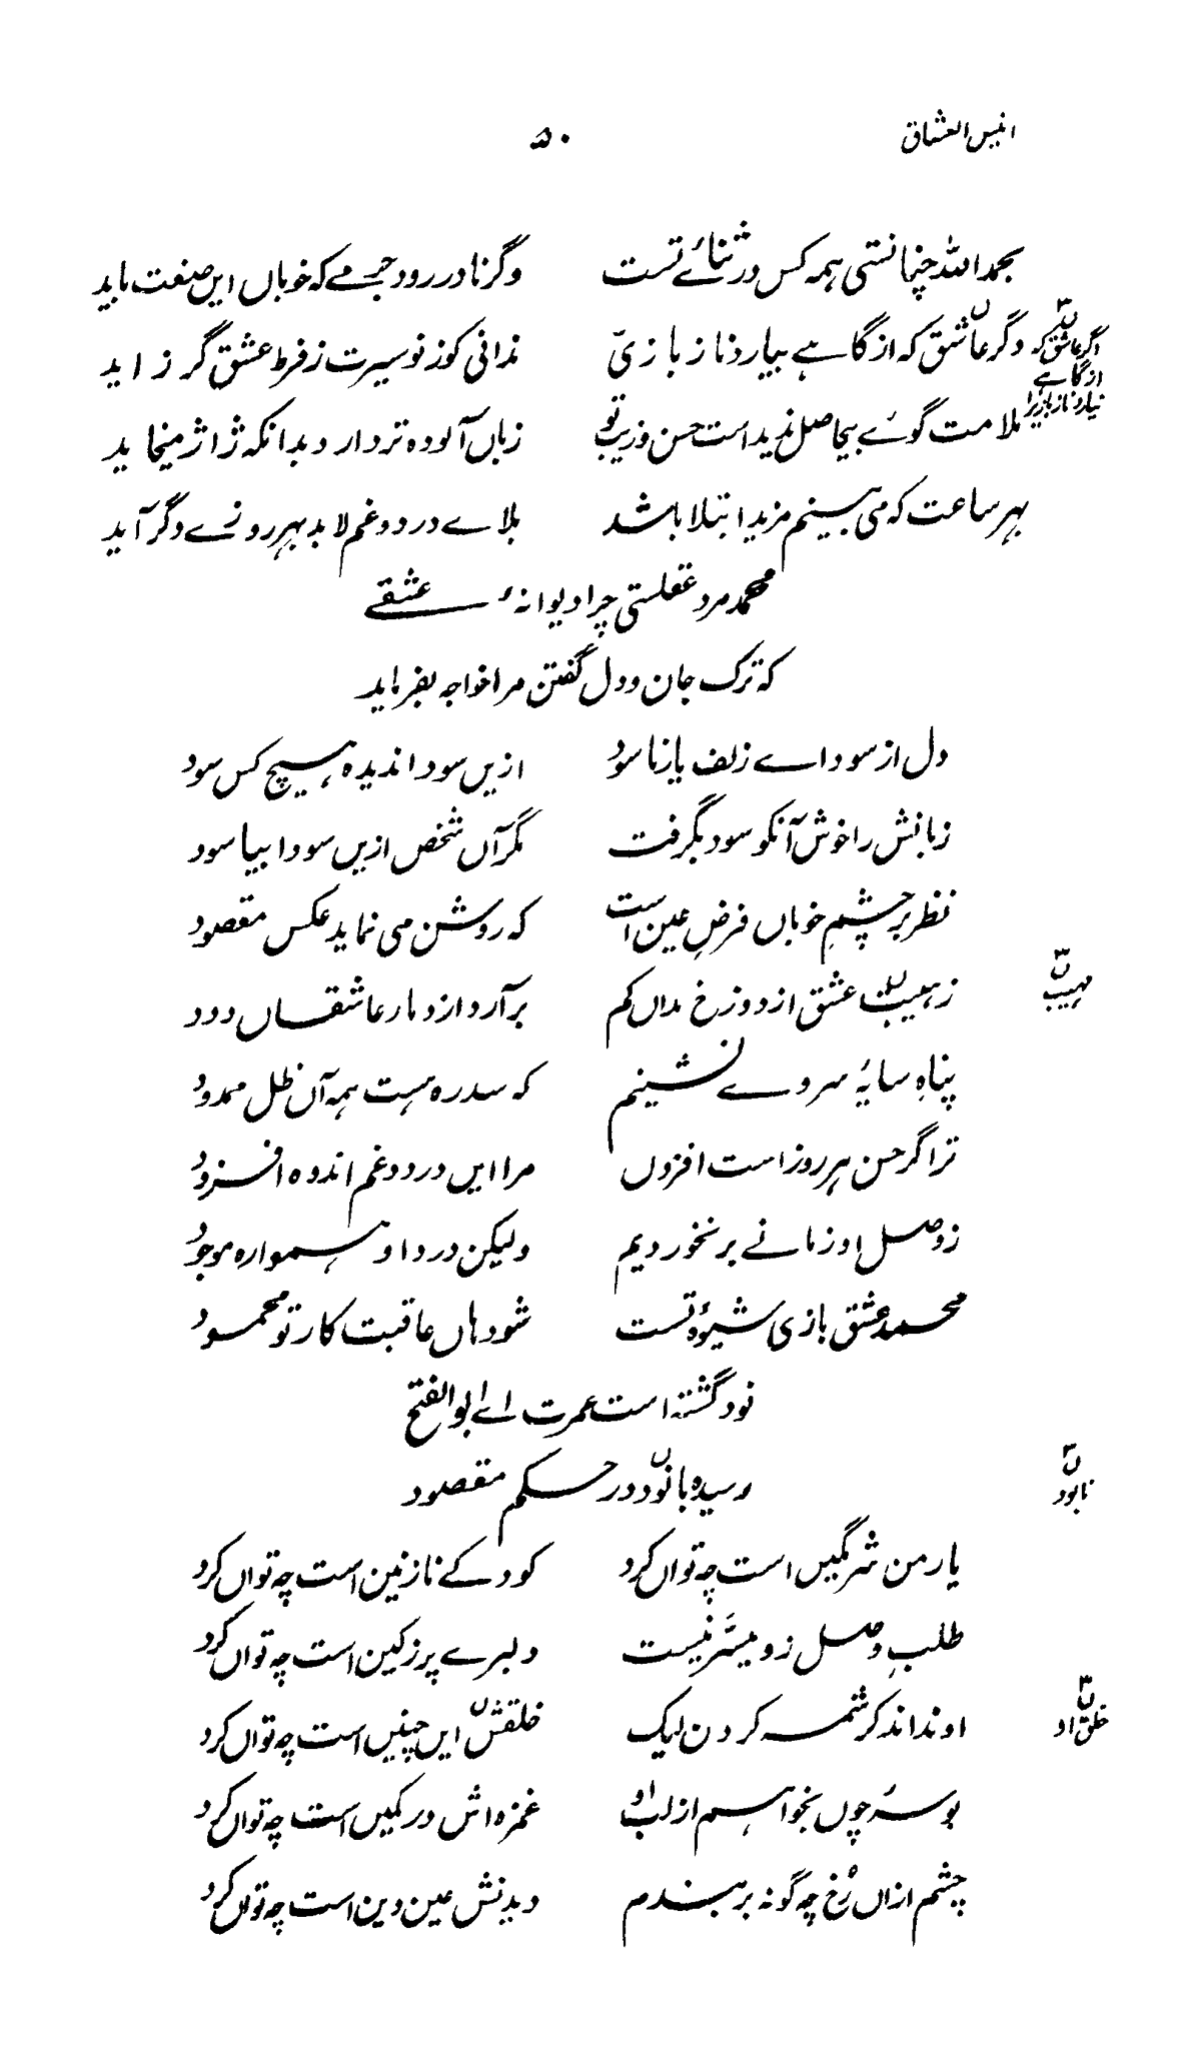 انیس العشاق ۵۰
بحمد اللہ چنانستی ہمہ کس در ثنائے تست وگر نادر رود جرمے کہ خوباں ایں صفت باید
وگر عاشق کہ از گاہے بیارد ناز بازیّ ندانی کوز نو سیرت ز فرط عشق گر زاید
ن اگر عاشق کہ
از گاہے
نیارد ناز بازیرا
ملامت گوئے بیحاصل ندید است حسن و زیب تو زباں آلودہ تر دارد بدانکہ ژاژ میخاید
بہر ساعت کہ می بینم مزید ابتلا باشد بلاے درد و غم لابد بہر روزے دگر آید
محمد مرد عقلستی چرا دیوانہٴ عشقے
کہ ترک جان و دل گفتن مرا خواجہ بفرماید
دل از سوداے زلف یار ناسود ازیں سودا ندیدہ ہیچ کس سود
زبانش را خوش آنکو سود بگرفت مگر آں شخص ازیں سودا بیاسود
نظر بر چشمِ خوباں فرضِ عین است کہ روشن می نماید عکس مقصود
عشق از دوزخ مداں کم برآرد از دمار عاشقاں دود
ن مہیب
پناہِ سایہٴ سروے نشینم کہ سدرہ ہست ہمہ آں ظل ممدود
ترا گر حسن ہر روز است افزوں مرا ایں درد و غم اندوہ افزود
ز وصل او زمانے بر نخوردیم ولیکن درد او ہموارہ موجود
محمد عشق بازی شیوہٴ تست شود ہاں عاقبت کار تو محمود
نود گشتہ است عمرت اے ابو الفتح
رسیدہ با نود در حکم مقصود
ن نابود
یار من شرمگیں است چہ تواں کرد کودکے نازنین است چہ تواں کرد
طلبِ وصل زو میسّر نیست دلبرے پر زکین است چہ تواں کرد
او نداند کرشمہ کردن لیک خلقش ایں چنیں است چہ تواں کرد
ن خلق او
بوسہٴ چوں بخواہم از لب او غمزہ اش در کمیں است چہ تواں کرد
چشم ازاں رُخ چہ گونہ بر بندم دیدنش عین دین است چہ تواں کرد